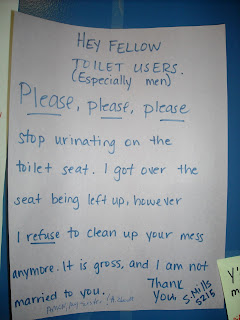 HEY FELLOW
TOILET USERS.
(Especially men)
Please, please, please
stop urinating on the
toilet seat. I got over the
seat being left up, however
I refuse to clean up your mess
anymore. It is gross, and I am not
married to you.
Thank
You
S. Mills
5215
Y'
m